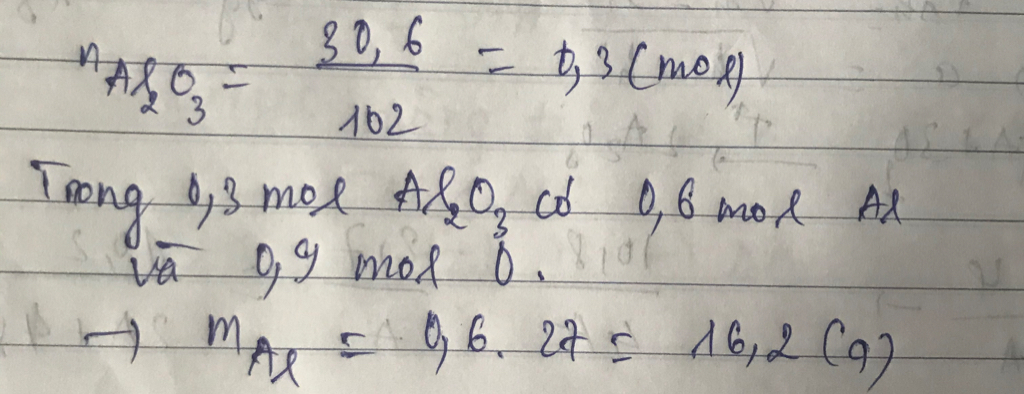 nAl₂O₃ = 30,6 / 102 = 0,3 (mol)
Trong 0,3 mol Al₂O₃ có 0,6 mol Al
và 0,9 mol O.
→ mAl = 0,6. 27 = 16,2 (g)